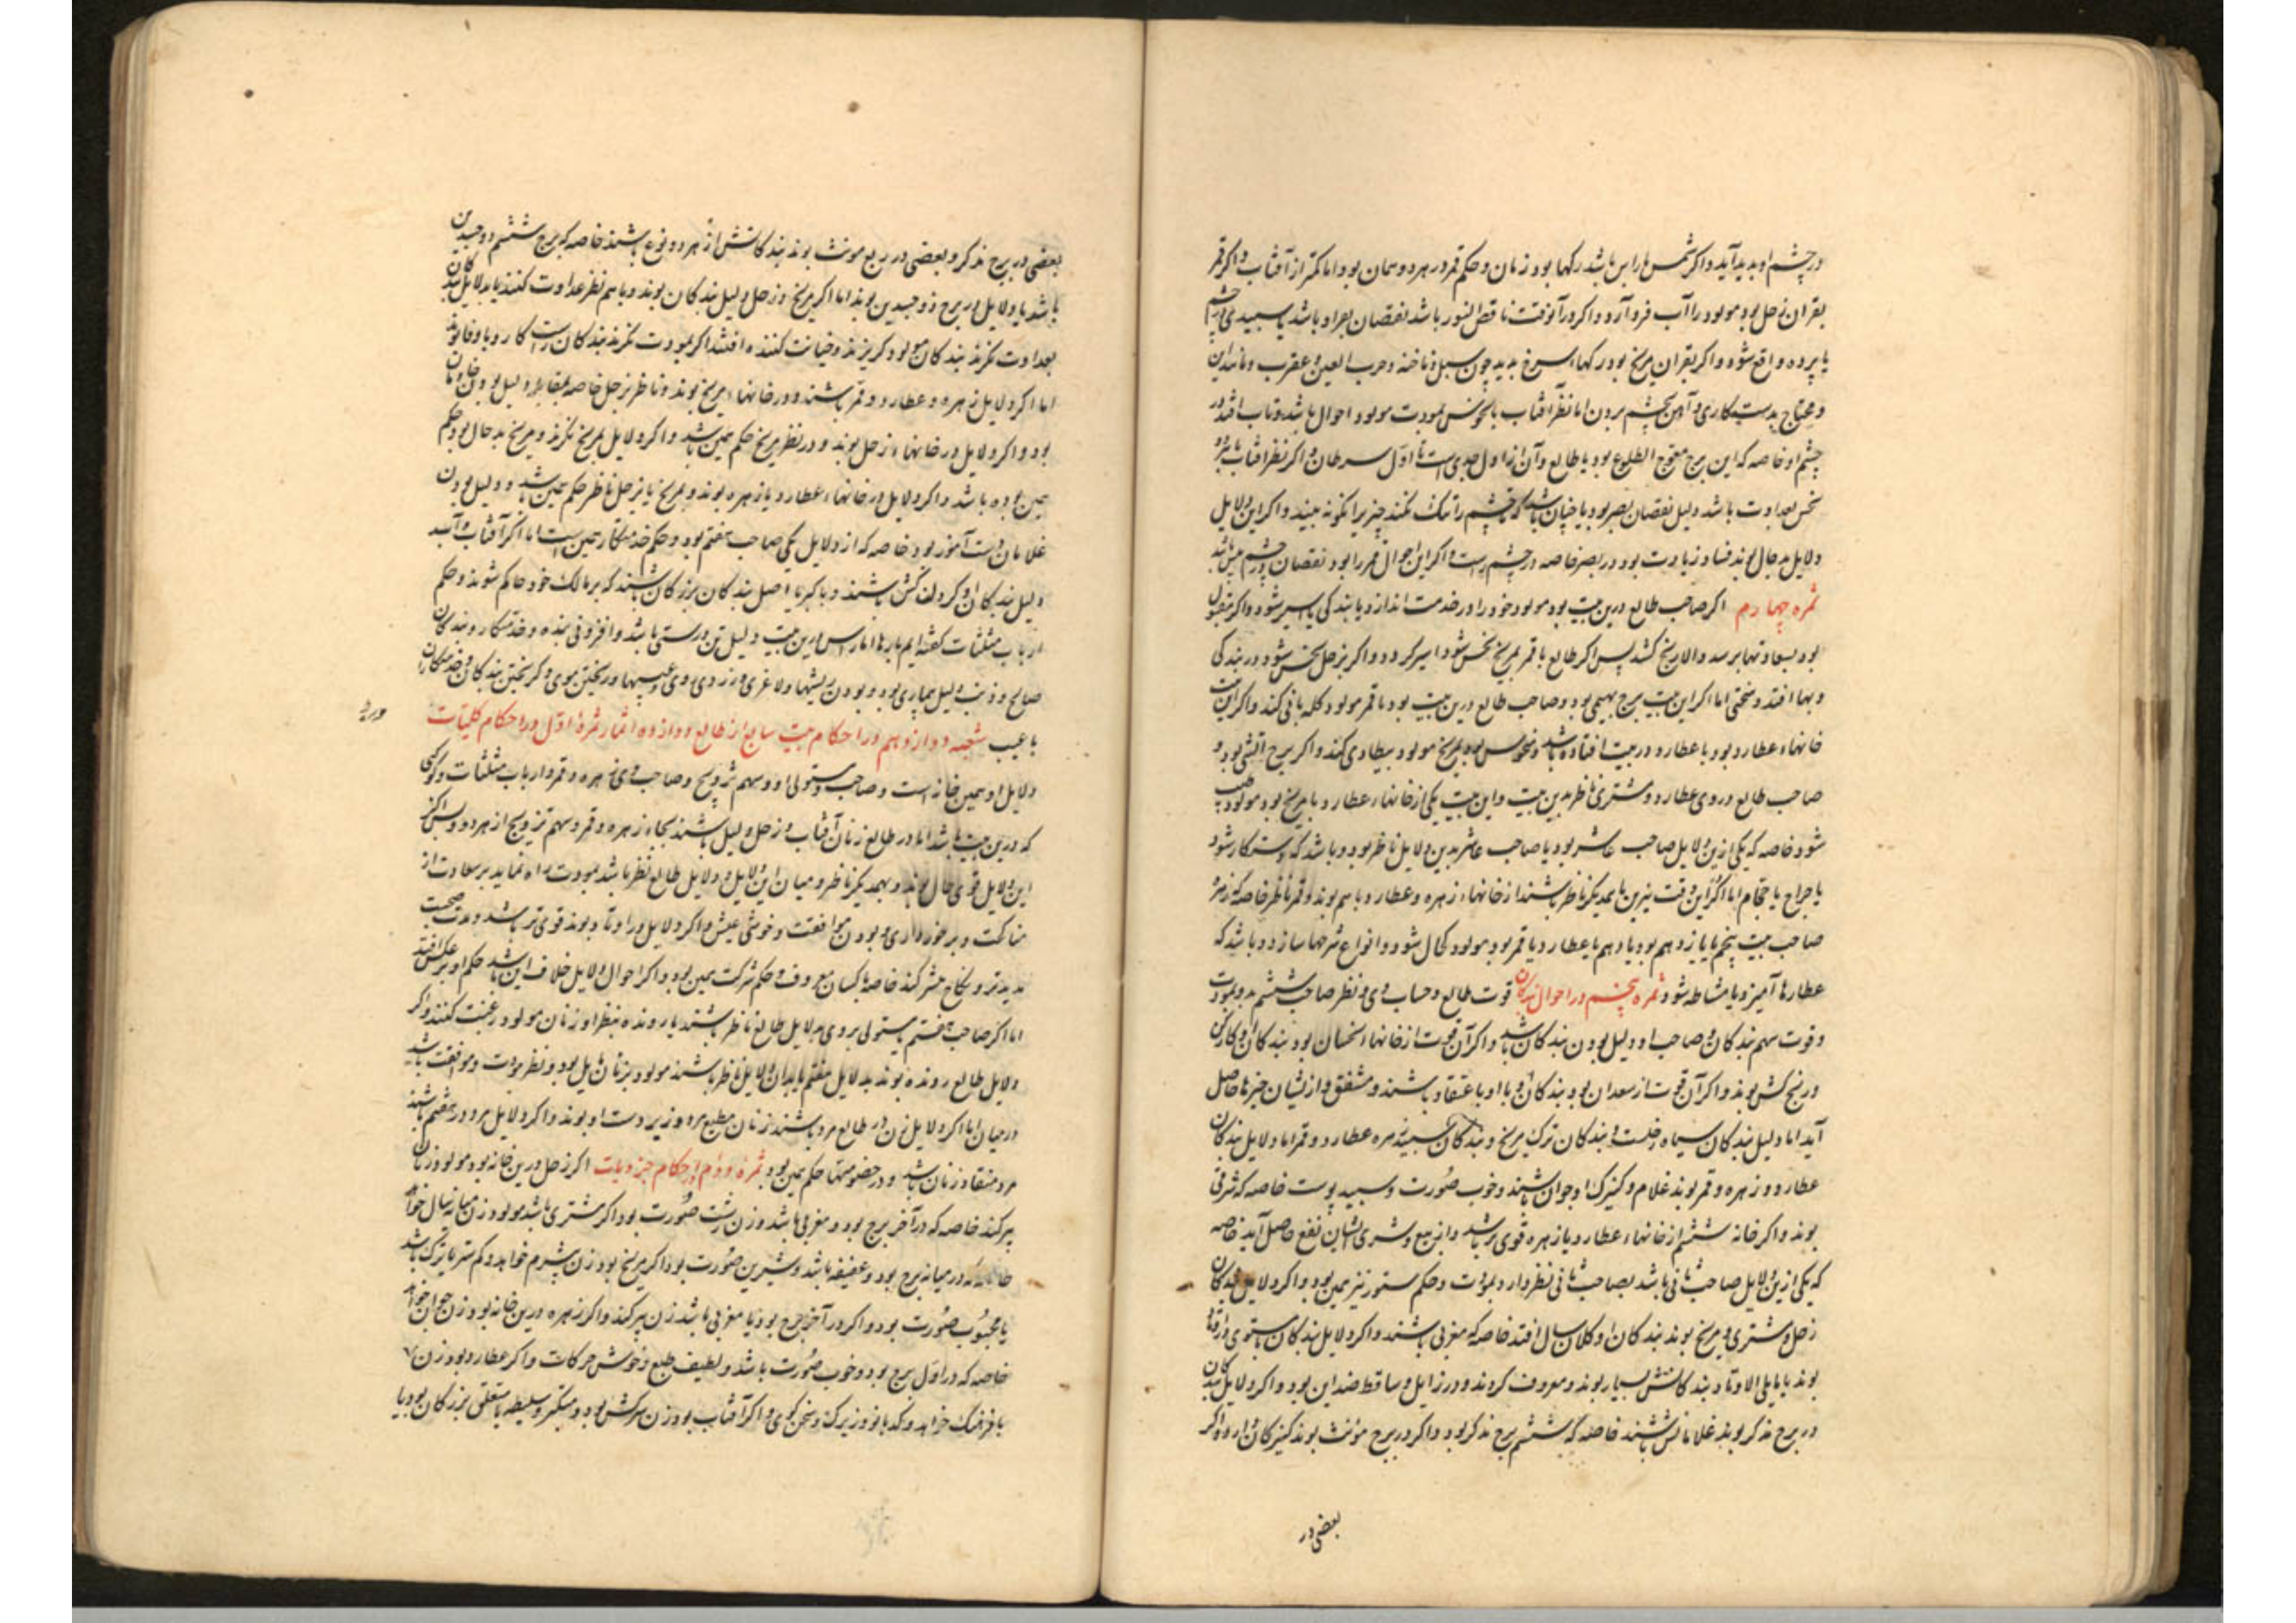 در چشم او پدید آید و اگر شمس با راس باشد رکها بود زنان و حکم قمر در هر دو سمان بود اما کمتر از آفتاب و اگر قمر
بقران زحل بود مولود را آب فرو آرد و اگر در آنوقت ناقص النور باشد نقصان بصر او باشد یا سپیدی در چشم
یا پرده واقع شود و اگر بقران مریخ بود رکهاء سرخ پدید چون سبل و ناخنه و حرب العین و عقرب و مانند این
و محتاج بدست کاری و آهن بچشم بردن اما نظر آفتاب با نحوس بمودت مولود احوال باشد و تاب افتد در
چشم او خاصه که این برج معوج الطلوع بود یا طالع و آن از اول جدی است تا اول سرطان و اگر نظر آفتاب با
نحس بعداوت باشد دلیل نقصان بصر بود یا چنان باشد که چشم را تنک کند چیز را نکو نه بیند و اگر این دلایل
دلایل بد حال بوند فساد زیادت بود در بصر خاصه در چشم راست و اگر این احوال قمر را بود نقصان چشم چپ باشد
ثمره چهارم اگر صاحب طالع درین بیت بود مولود خود را در خدمت اندازد یا بندکی یا اسیر شود و اگر مقبول
بود بسعادتها برسد و الا رنج کشد پس اگر طالع یا قمر بمریخ نحس شود اسیر کردد و اگر بزحل نحس شود در بندکی
و بها افتد و سختی اما اگر این بیت برج بهیمی بود و صاحب طالع درین بیت بود با قمر مولود کله بانی کند و اگر این بیت
خانهاء عطارد بود با عطارد در بیت افتاده باشد و منحوس بود بمریخ مولود بیطاری کند و اگر برج آتشی بود و
صاحب طالع در وی عطارد و مشتری ناظر بدین بیت و این بیت یکی از خانهاء عطارد یا مریخ بود مولود طبیب
شود خاصه که یکی ازین دلایل صاحب عاشر بود یا صاحب عاشر بدین دلایل ناظر بود و باشد که دستکار شود
یا جراح یا حجام اما اگر این وقت نیرین با یکدیگر ناظر باشند از خانهاء زهره و عطارد با هم بوند و قمر ناظر خاصه که زهره
صاحب بیت پنجم یا یازدهم بود یا دهم یا عطارد یا قمر بود مولود کحال شود و انواع سرمها سازد و باشد که
عطارها آمیزد یا مشاطه شود ثمره پنجم در احوال بندکان قوت طالع و حساب وی و نظر صاحب ششم بدو بمودت
و قوت سهم بندکان و صاحب او دلیل بودن بندکان باشد و اگر آن قوت از خانهاء نحسان بود بندکان او کارکن
و رنج کش بوند و اگر آن قوت از سعدان بود بندکان او با اعتقاد باشند و مشفق و از ایشان خیرها حاصل
آید اما دلیل بندکان سیاه زحلست و بندکان ترک مریخ و بندکان سپید زهره عطارد و قمر اما دلایل بندکان
عطارد و زهره و قمر بوند غلام و کنیزک او جوان باشند و خوب صورت و سپید پوست خاصه که شرقی
بوند و اگر خانه ششم از خانهاء عطارد یا زهره قوی تر باشد و از بیع و شری ایشان نفع حاصل آید خاصه
که یکی ازین دلایل صاحب ثانی باشد بصاحب ثانی نظر دارد بمودت و حکم ستور نیز همین بود و اگر دلایل بندکان
زحل و مشتری و مریخ بوند بندکان او کلان سال افتد خاصه که مغربی باشند و اگر دلایل بندکان مستوی در اوتاد
بوند یا مایلی الاوتاد بندکانش بسیار بوند و معروف کردند و در زایل و ساقط ضد این بود و اگر دلایل بندکان
در برج مذکر بوند غلامانش باشند خاصه که ششم برج مذکر بود و اگر در برج مؤنث بوند کنیزکان دارد و اگر
بعضی در
بعضی در برج مذکر و بعضی در ربع مونث بوند بندکانش از هر دو نوع باشند خاصه که برج ششم ذو جسدین
باشد یا دلایل در برج ذو جسدین بوند اما اگر مریخ و زحل دلیل بندکان بوند و با هم نظر عداوت کنند یا بدلایل بندکان
بعداوت نکرند بندکان مولود کریزند و خیانت کننده افتند اگر بمودت نکرند بندکان راست کار و با وفا بوند
اما اگر دلایل زهره و عطارد و قمر باشند و در خانهاء مریخ بوند و ناظر بزحل خاصه بمقابله دلیل بودن خادمان
بود و اگر دلایل در خانهاء زحل بوند و در نظر مریخ حکم همین باشد و اگر دلایل بمریخ نکرند و مریخ بد حال بود حکم
همین بوده باشد و اگر دلایل در خانهاء عطارد یا زهره بوند و بمریخ یا بزحل ناظر حکم همین باشد و دلیل بودن
غلامان دست آموز بود خاصه که از دلایل یکی صاحب هفتم بود و حکم خدمتکار همین است اما اگر آفتاب و اسد
دلیل بندکان او کردن کش باشند و با کبر یا اصل بندکان بزرکان باشند که بر مالک خود حاکم شوند و حکم
ارباب مثلثات کفته ایم بارها اما راس درین بیت دلیل تن درستی باشد و افزونی بنده و خدمتکار و بندکان
صالح و ذنب دلیل بیماری بود و بودن ریشها و لاغری و زردی روی و عیبها و ریختن موی و کریختن بندکان و خدمتکاران
با عیب شعبه دوازدهم در احکام بیت سابع از طالع و دوازده اثمار ثمره اول در احکام کلیات
دلایل او همین خانه است و صاحب و مستولی او و سهم تزویج و صاحب وی زهره و قمر و ارباب مثلثات و کوکبی
که درین بیت باشد اما در طالع زنان آفتاب و زحل دلیل باشند بجاء زهره و قمر و سهم تزویج از هر دو پس اگر
این دلایل قوی حال بوند و بهمدیگر ناظر و میان این دلایل و دلایل طالع نظر باشد بمودت راه نماید بر سعادت از
مناکحت و برخورداری و بودن موافقت و خوشی عیش و اگر دلایل در اوتاد بوند قوی تر باشد و مدت صحبت
مدیدتر و نکاح بیشتر کند خاصه با کسان معروف و حکم شرکت همین بود و اگر احوال دلایل خلاف این باشد حکم او بر عکس افتد
اما اگر صاحب هفتم یا مستولی بر وی بدلایل طالع ناظر باشند یا رونده بنظر او زنان مولود رغبت کنند و اگر
دلایل طالع رونده بوند بدلایل هفتم یا بدان دلایل ناظر باشند مولود بزنان مایل بود و نظر مودت و موافقت باشد
در میان اما اگر دلایل زن در طالع مرد باشند زنان مطیع مرد و زیردست او بوند و اگر دلایل مرد در هفتم باشند
مرد منقاد زنان باشد و در خصومتها حکم همین بود ثمره دوم در احکام جزویات اگر زحل درین خانه بود مولود زنان
پیر کند خاصه که در آخر برج بود و مغربی باشد و زن زشت صورت بود اگر مشتری باشد مولود زن میانه سال خواهد
خاصه که در میانه برج بود و عفیفه باشد و شیرین صورت بود اگر مریخ بود زن بی شرم خواهد و کم ستر یا ترک باشد
یا محبوب صورت بود و اگر در آخر برج بود یا مغربی باشد زن پیر کند و اگر زهره درین خانه بود زن جوان خواهد
خاصه که در اول برج بود و خوب صورت باشد و لطیف طبع و خوش حرکات و اگر عطارد بود زن
با فرهنک خواهد و کدبانو و زیرک و سخن کوی و اگر آفتاب بود زن سرکش بود و متکبر و سلیطه یا متعلق بزرکان بود یا